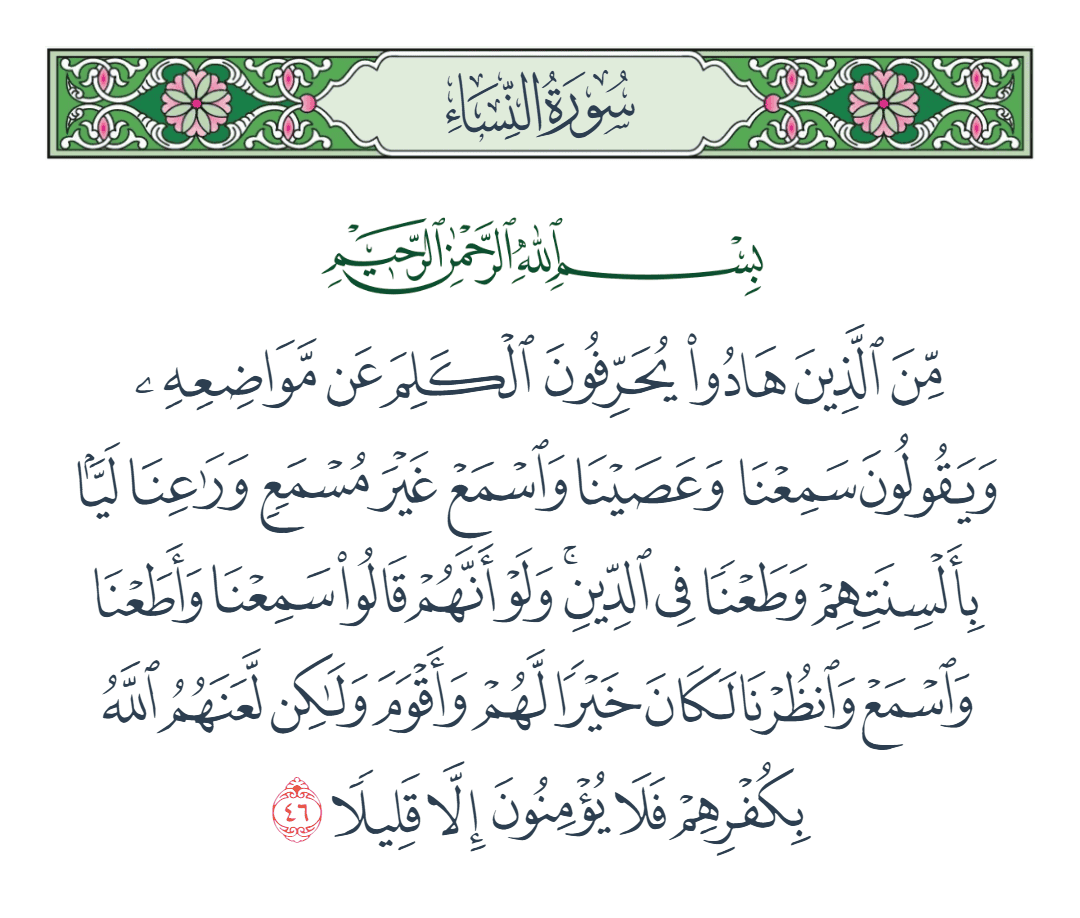 سُورَةُ النِّسَاءِ
بِسْمِ ٱللَّهِ ٱلرَّحْمَٰنِ ٱلرَّحِيمِ
مِّنَ ٱلَّذِينَ هَادُوا۟ يُحَرِّفُونَ ٱلْكَلِمَ عَن مَّوَاضِعِهِۦ
وَيَقُولُونَ سَمِعْنَا وَعَصَيْنَا وَٱسْمَعْ غَيْرَ مُسْمَعٍ وَرَٰعِنَا لَيًّۢا
بِأَلْسِنَتِهِمْ وَطَعْنًا فِى ٱلدِّينِ ۚ وَلَوْ أَنَّهُمْ قَالُوا۟ سَمِعْنَا وَأَطَعْنَا
وَٱسْمَعْ وَٱنظُرْنَا لَكَانَ خَيْرًا لَّهُمْ وَأَقْوَمَ وَلَٰكِن لَّعَنَهُمُ ٱللَّهُ
بِكُفْرِهِمْ فَلَا يُؤْمِنُونَ إِلَّا قَلِيلًا ٤٦